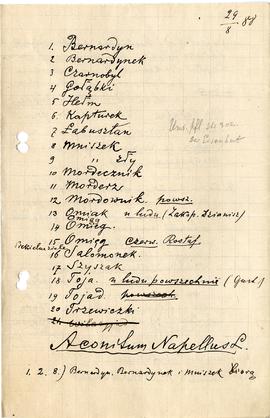 29/8 88
1. Bernardyn
2 Bernardynek
3 Czarnobyl
4 Gołąbki
5 Hełm
6. Kapturek
7 Łabusztan
8 Mniszek
9 " Zły
10 Mordecznik
11 Morderz
12 Mordownik powsz.
13 Omiak u ludu (Zakop. Dzianisz)
14 Omięg
15 Omięg czerw. Rostaf
16 Salomonek.
17 Szyszak
18 Toja. u ludu powszechnie (
19 Tojad. powszech
20 Trzewiczki
21
Aconitum Napellus L.
1. 2. 8.) Bernadyn, Bernardynek i Mniszek biorą